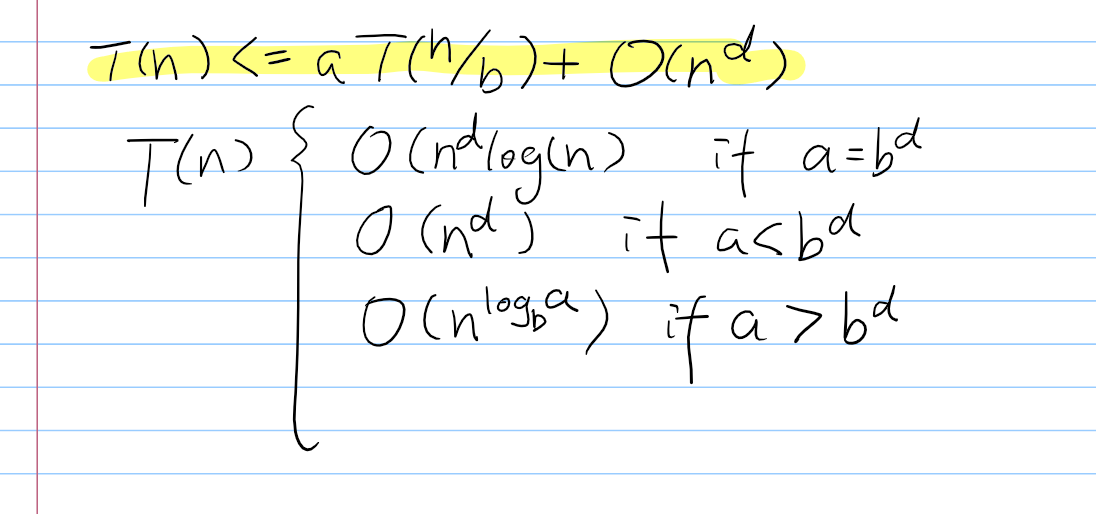 T(n) <= a T(n/b) + O(n^d)
T(n) { O(n^d log(n) if a=b^d
O(n^d) if a<b^d
O(n^{log_b a}) if a > b^d